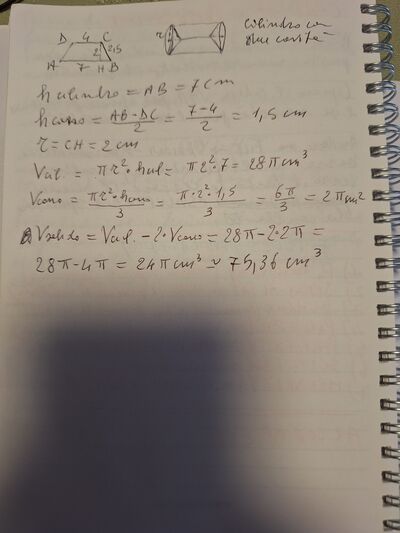 cilindro con
due cavità
D 4 C
2 2,5
A 7 H B
r
h cilindro = AB = 7 cm
h cono = AB - DC / 2 = 7-4 / 2 = 1,5 cm
r = CH = 2 cm
Vcil = πr²·hcil = π2²·7 = 28π cm³
Vcono = πr²·hcono / 3 = π·2²·1,5 / 3 = 6π / 3 = 2π cm²
Vsolido = Vcil. - 2·Vcono = 28π-2·2π =
28π-4π = 24π cm³ ≈ 75,36 cm³